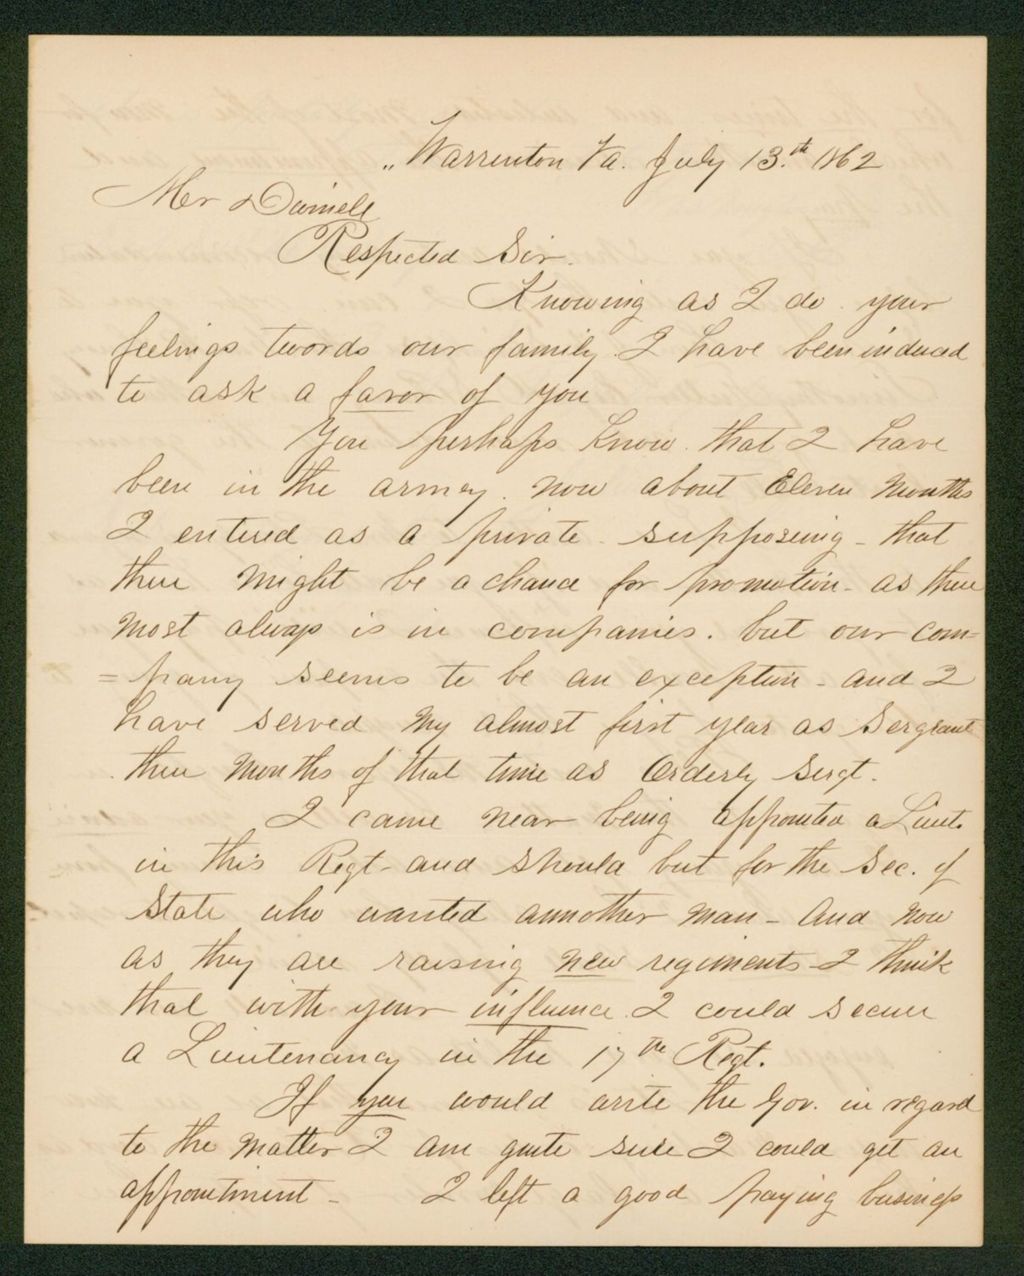 Warrenton Va. July 13.th 1862
Mr Daniels
Respected Sir.
Knowing as I do your
feelings twords our family I have been induced
to ask a favor of you
You perhaps know that I have
been in the army now about Eleven Months
I entered as a private supposeing - that
there might be a chance for promotion - as there
most always is in companies. but our com=
=pany seems to be an exception - and I
have served my almost first year as Sergeant
three Months of that time as Orderly Sergt.
I came near being appointed a Lieut.
in this Regt - and should but for the Sec. of
State who wanted annother man - And now
as they are raising new regiments - I think
that with your influence I could secure
a Lieutenancy in the 17th Regt.
If you would write the Gov. in regard
to the matter I am quite sure I could get an
appointment - I left a good paying business